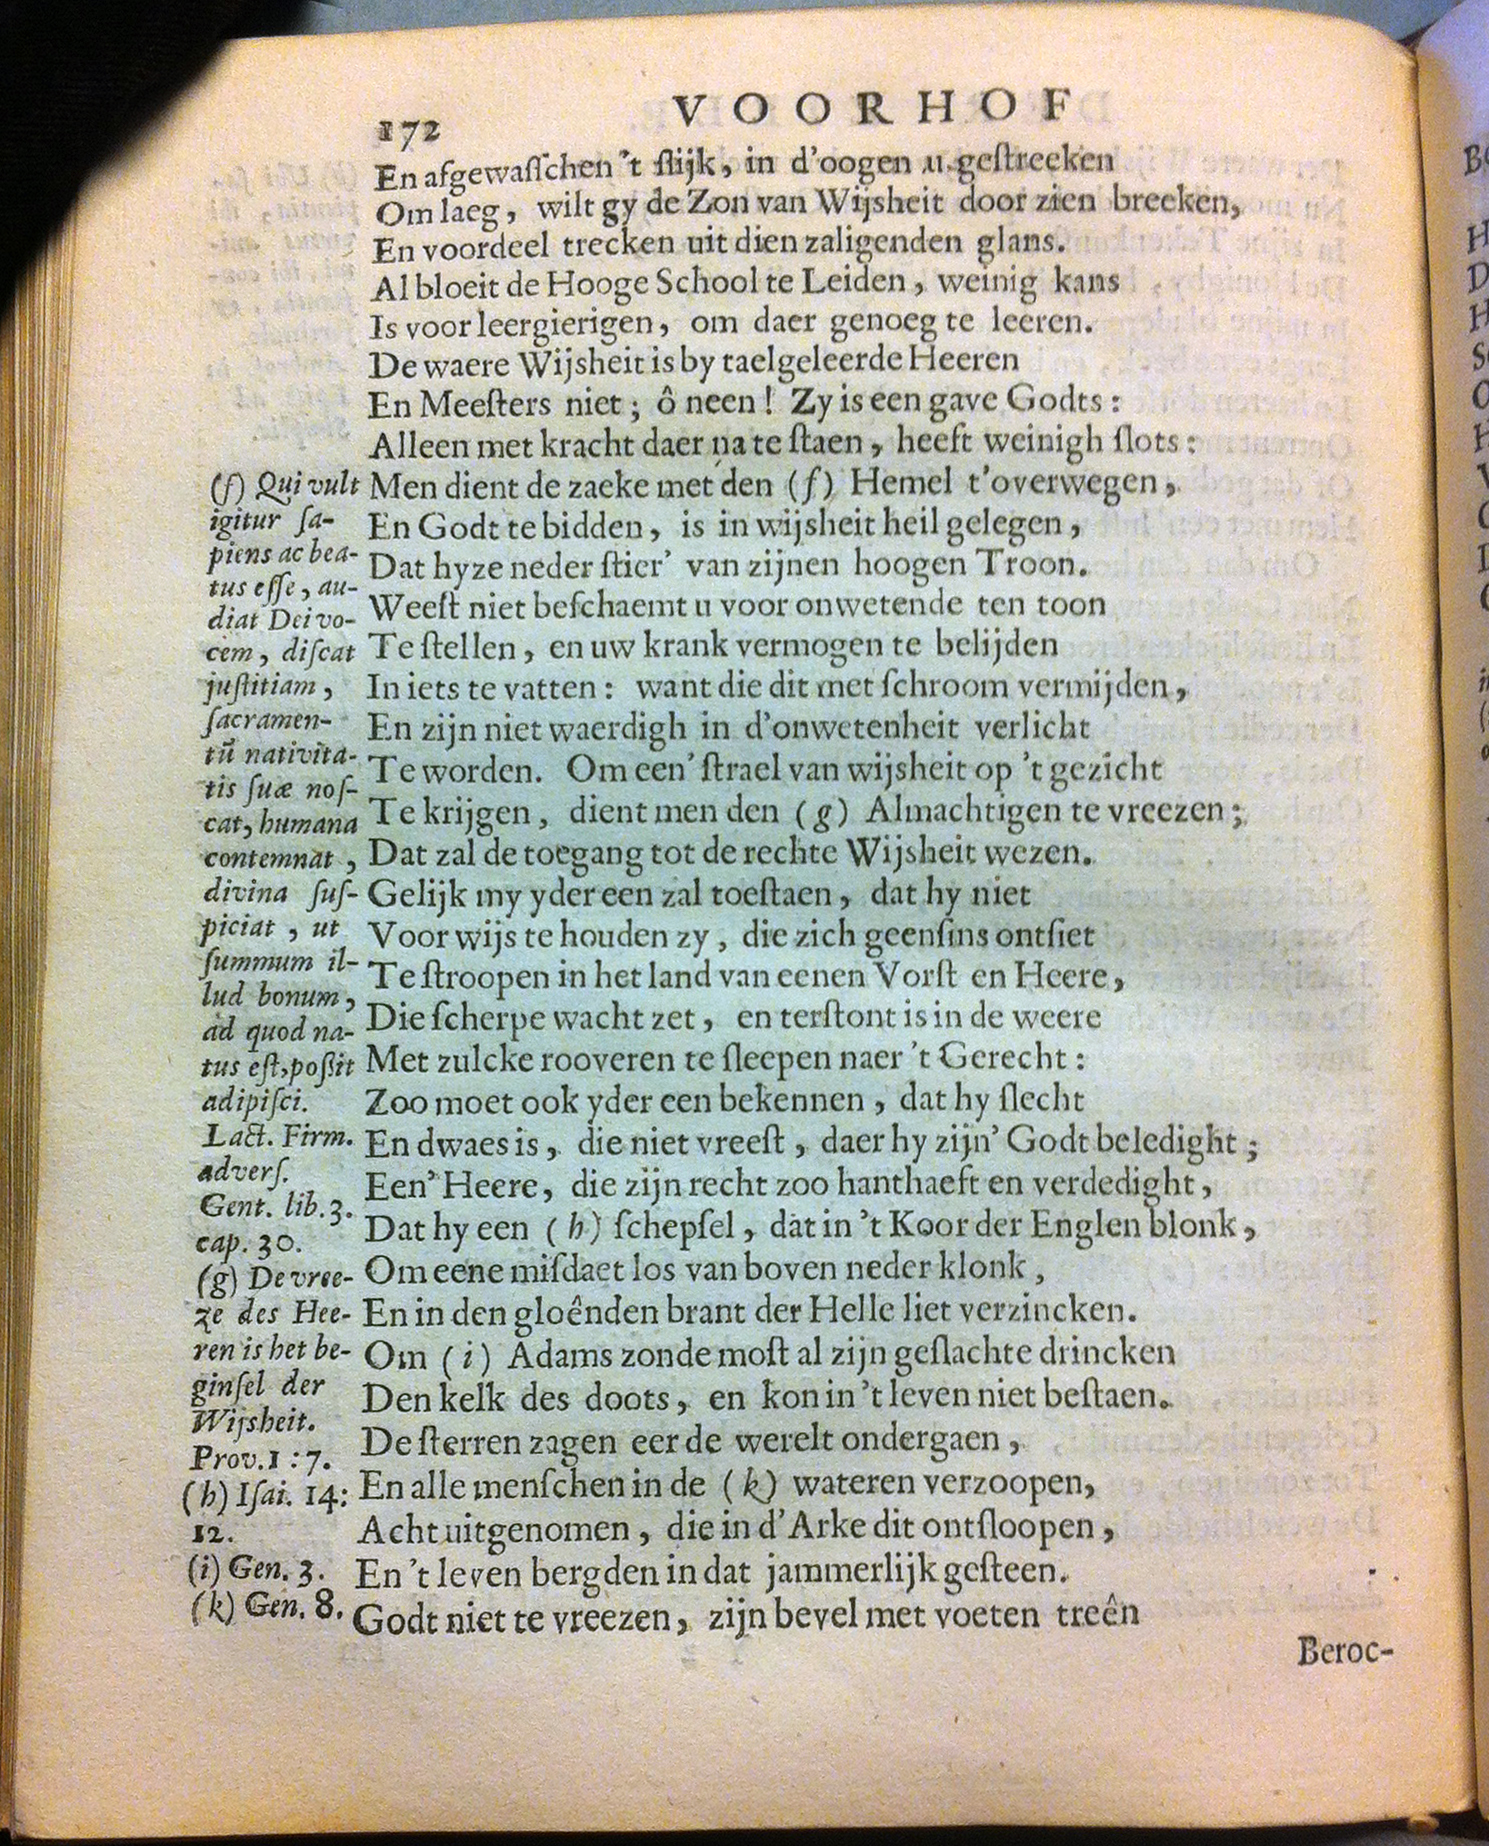 172
VOORHOF
En afgewaſſchen 't ſlijk, in d'oogen u geſtreeken
Om laeg, wilt gy de Zon van Wijsheit door zien breeken,
En voordeel trecken uit dien zaligenden glans.
Al bloeit de Hooge School te Leiden, weinig kans
Is voor leergierigen, om daer genoeg te leeren.
De waere Wijsheit is by taelgeleerde Heeren
En Meeſters niet; ô neen! Zy is een gave Godts:
Alleen met kracht daer na te ſtaen, heeft weinigh ſlots:
Men dient de zaeke met den (f) Hemel t'overwegen,
En Godt te bidden, is in wijsheit heil gelegen,
Dat hyze neder ſtier' van zijnen hoogen Troon.
Weeſt niet beſchaemt u voor onwetende ten toon
Te ſtellen, en uw krank vermogen te belijden
In iets te vatten: want die dit met ſchroom vermijden,
En zijn niet waerdigh in d'onwetenheit verlicht
Te worden. Om een' ſtrael van wijsheit op 't gezicht
Te krijgen, dient men den (g) Almachtigen te vreezen;
Dat zal de toegang tot de rechte Wijsheit wezen.
Gelijk my yder een zal toeſtaen, dat hy niet
Voor wijs te houden zy, die zich geenſins ontſiet
Te ſtroopen in het land van eenen Vorſt en Heere,
Die ſcherpe wacht zet, en terſtont is in de weere
Met zulcke rooveren te ſleepen naer 't Gerecht:
Zoo moet ook yder een bekennen, dat hy ſlecht
En dwaes is, die niet vreeſt, daer hy zijn' Godt beledight;
Een' Heere, die zijn recht zoo hanthaeft en verdedight,
Dat hy een (h) ſchepſel, dat in 't Koor der Englen blonk,
Om eene miſdaet los van boven neder klonk,
En in den gloênden brant der Helle liet verzincken.
Om (i) Adams zonde moſt al zijn geſlachte drincken
Den kelk des doots, en kon in 't leven niet beſtaen.
De ſterren zagen eer de werelt ondergaen,
En alle menſchen in de (k) wateren verzoopen,
Acht uitgenomen, die in d'Arke dit ontſloopen,
En 't leven bergden in dat jammerlijk geſteen.
Godt niet te vreezen, zijn bevel met voeten treên
Beroc-
(f) Qui vult
igitur ſa-
piens ac bea-
tus eſſe, au-
diat Dei vo-
cem, diſcat
juſtitiam,
ſacramen-
tũ nativita-
tis ſuæ noſ-
cat, humana
contemnat,
divina ſuſ-
piciat, ut
ſummum il-
lud bonum,
ad quod na-
tus eſt, poſſit
adipiſci.
Lact. Firm.
adverſ.
Gent. lib. 3.
cap. 30.
(g) De vree-
ze des Hee-
ren is het be-
ginſel der
Wijsheit.
Prov. 1:7.
(h) Iſai. 14:
12.
(i) Gen. 3.
(k) Gen. 8.